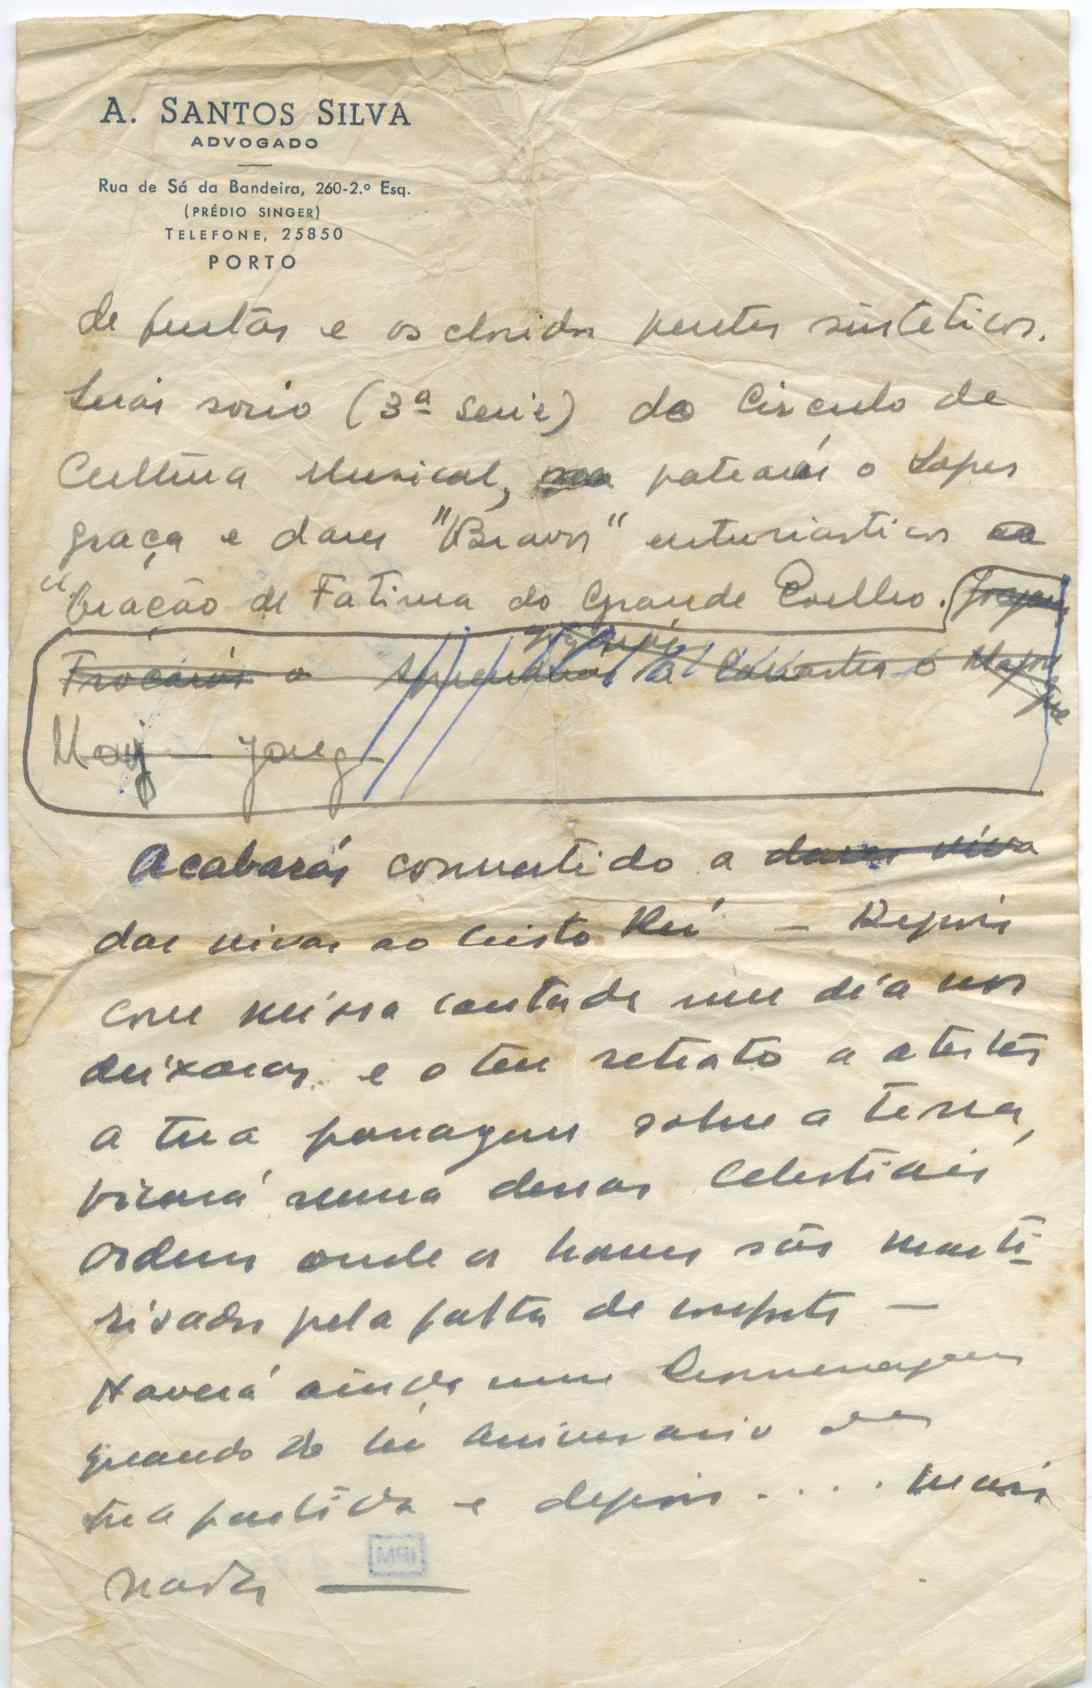 A. SANTOS SILVA
ADVOGADO
Rua de Sá da Bandeira, 260-2.º Esq.
(PRÉDIO SINGER)
TELEFONE, 25850
PORTO
de e os pentes sinteticos.
Serás socio (3ª Serie) do Circulo de
Cultura Musical, patearás o Lopes
Graça e darás "Bravos" enturiasticos
"Oração de Fatima do Grande Coelho.
Trocarás o Aprenderás a
Acabarás convertido a dares viva
dar vivas ao Cristo Rei — Depois
com missa cantada um dia nos
deixaras e o teu retrato a atestar
a tua passagem sobre a terra,
ficará numa dessas Celestiais
Ordens onde os homens são marti-
risados pela falta de conforto —
Haverá ainda uma homenagem
quando do 1º aniversario da
tua partida e depois .... mais
nada —
IPM